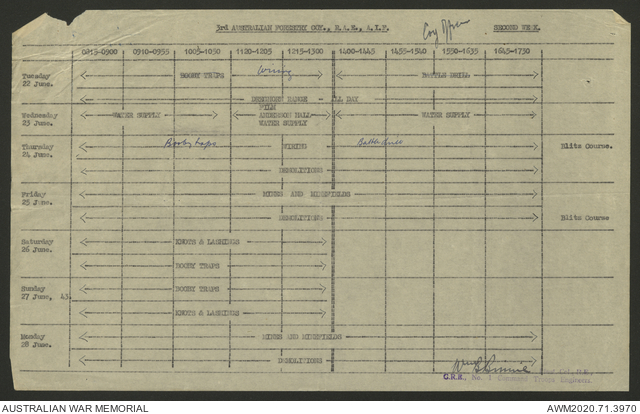 3rd AUSTRALIAN FORESTRY COY., R.A.E., A.I.F. Coy Office SECOND WEEK.
0815-0900 0910-0955 1005-1050 1120-1205 1215-1300 1400-1445 1455-1540 1550-1635 1645-1730
Tuesday BOOBY TRAPS Wiring BATTLE DRILL
22 June.
RANGE ALL DAY
FILM
Wednesday WATER SUPPLY ANDERSON HALL WATER SUPPLY
23 June. WATER SUPPLY
Thursday Booby Traps WIRING Blitz Course.
24 June.
DEMOLITIONS
Friday MINES AND MINEFIELDS
25 June.
DEMOLITIONS Blitz Course
Saturday KNOTS & LASHINGS
26 June.
BOOBY TRAPS
Sunday BOOBY TRAPS
27 June, 43.
KNOTS & LASHINGS
Monday MINES AND MINEFIELDS
28 June.
DEMOLITIONS
AUSTRALIAN WAR MEMORIAL AWM2020.71.3970